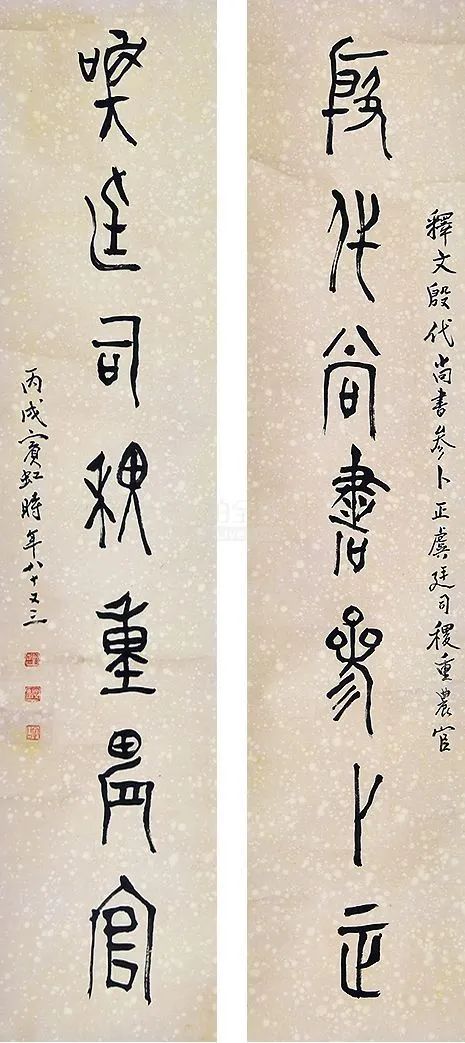 釋文殷代尚書參卜正虞廷司稷重農官
殷代尚書參卜正
虞廷司稷重農官
丙戌賓虹時年八十又三